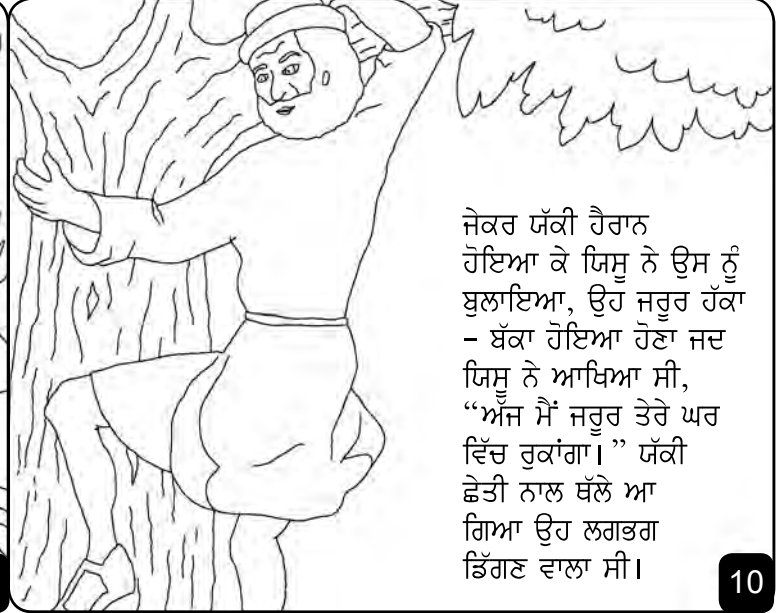 ਜੇਕਰ ਯੱਕੀ ਹੈਰਾਨ
ਹੋਇਆ ਕੇ ਯਿਸੂ ਨੇ ਉਸ ਨੂੰ
ਬੁਲਾਇਆ, ਉਹ ਜਰੂਰ ਹੱਕਾ
- ਬੱਕਾ ਹੋਇਆ ਹੋਣਾ ਜਦ
ਯਿਸੂ ਨੇ ਆਖਿਆ ਸੀ,
“ਅੱਜ ਮੈਂ ਜਰੂਰ ਤੇਰੇ ਘਰ
ਵਿੱਚ ਰੁਕਾਂਗਾ। ” ਯੱਕੀ
ਛੇਤੀ ਨਾਲ ਥੱਲੇ ਆ
ਗਿਆ ਉਹ ਲਗਭਗ
ਡਿੱਗਣ ਵਾਲਾ ਸੀ।
10